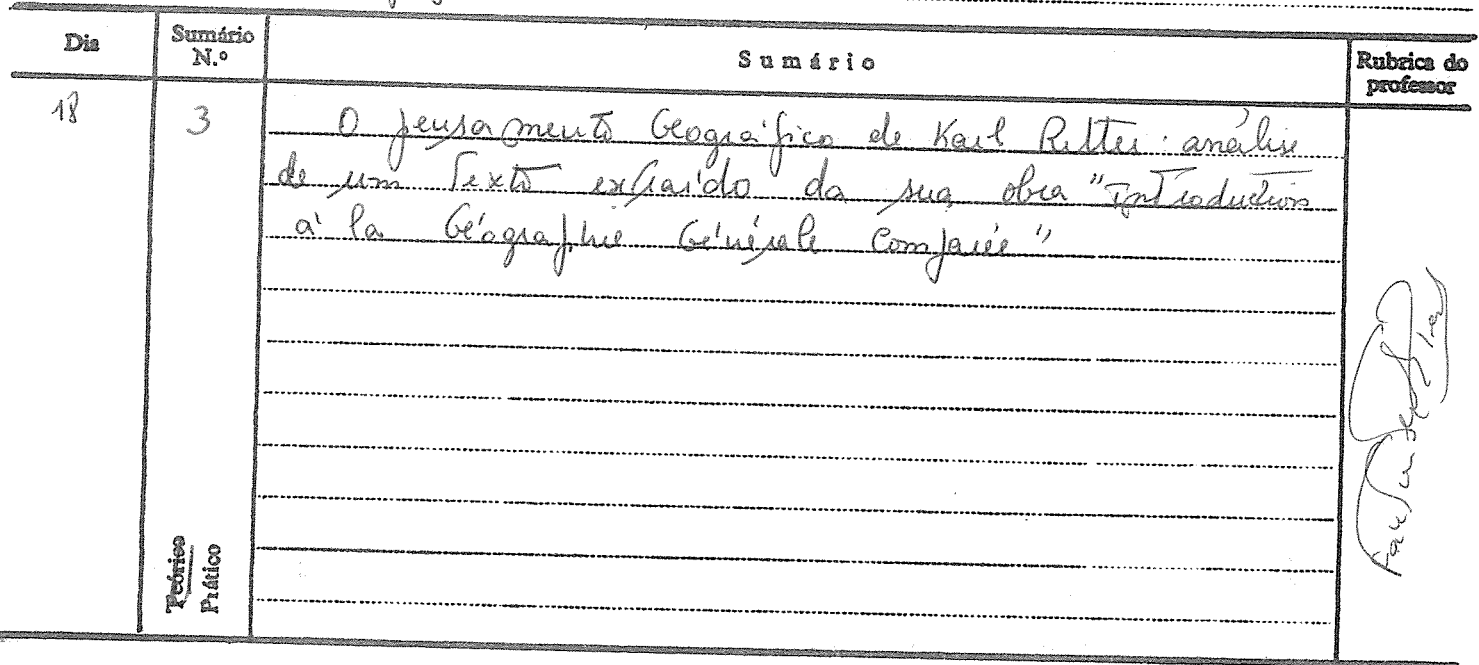 Dia
Sumário
N.º
Sumário
Rubrica do
professor
18
3
O pensamento Geográfico de Karl Ritter: análise
de um texto extraído da sua obra "Introduction
à la Géographie Générale Comparée"
Teórico
Prático